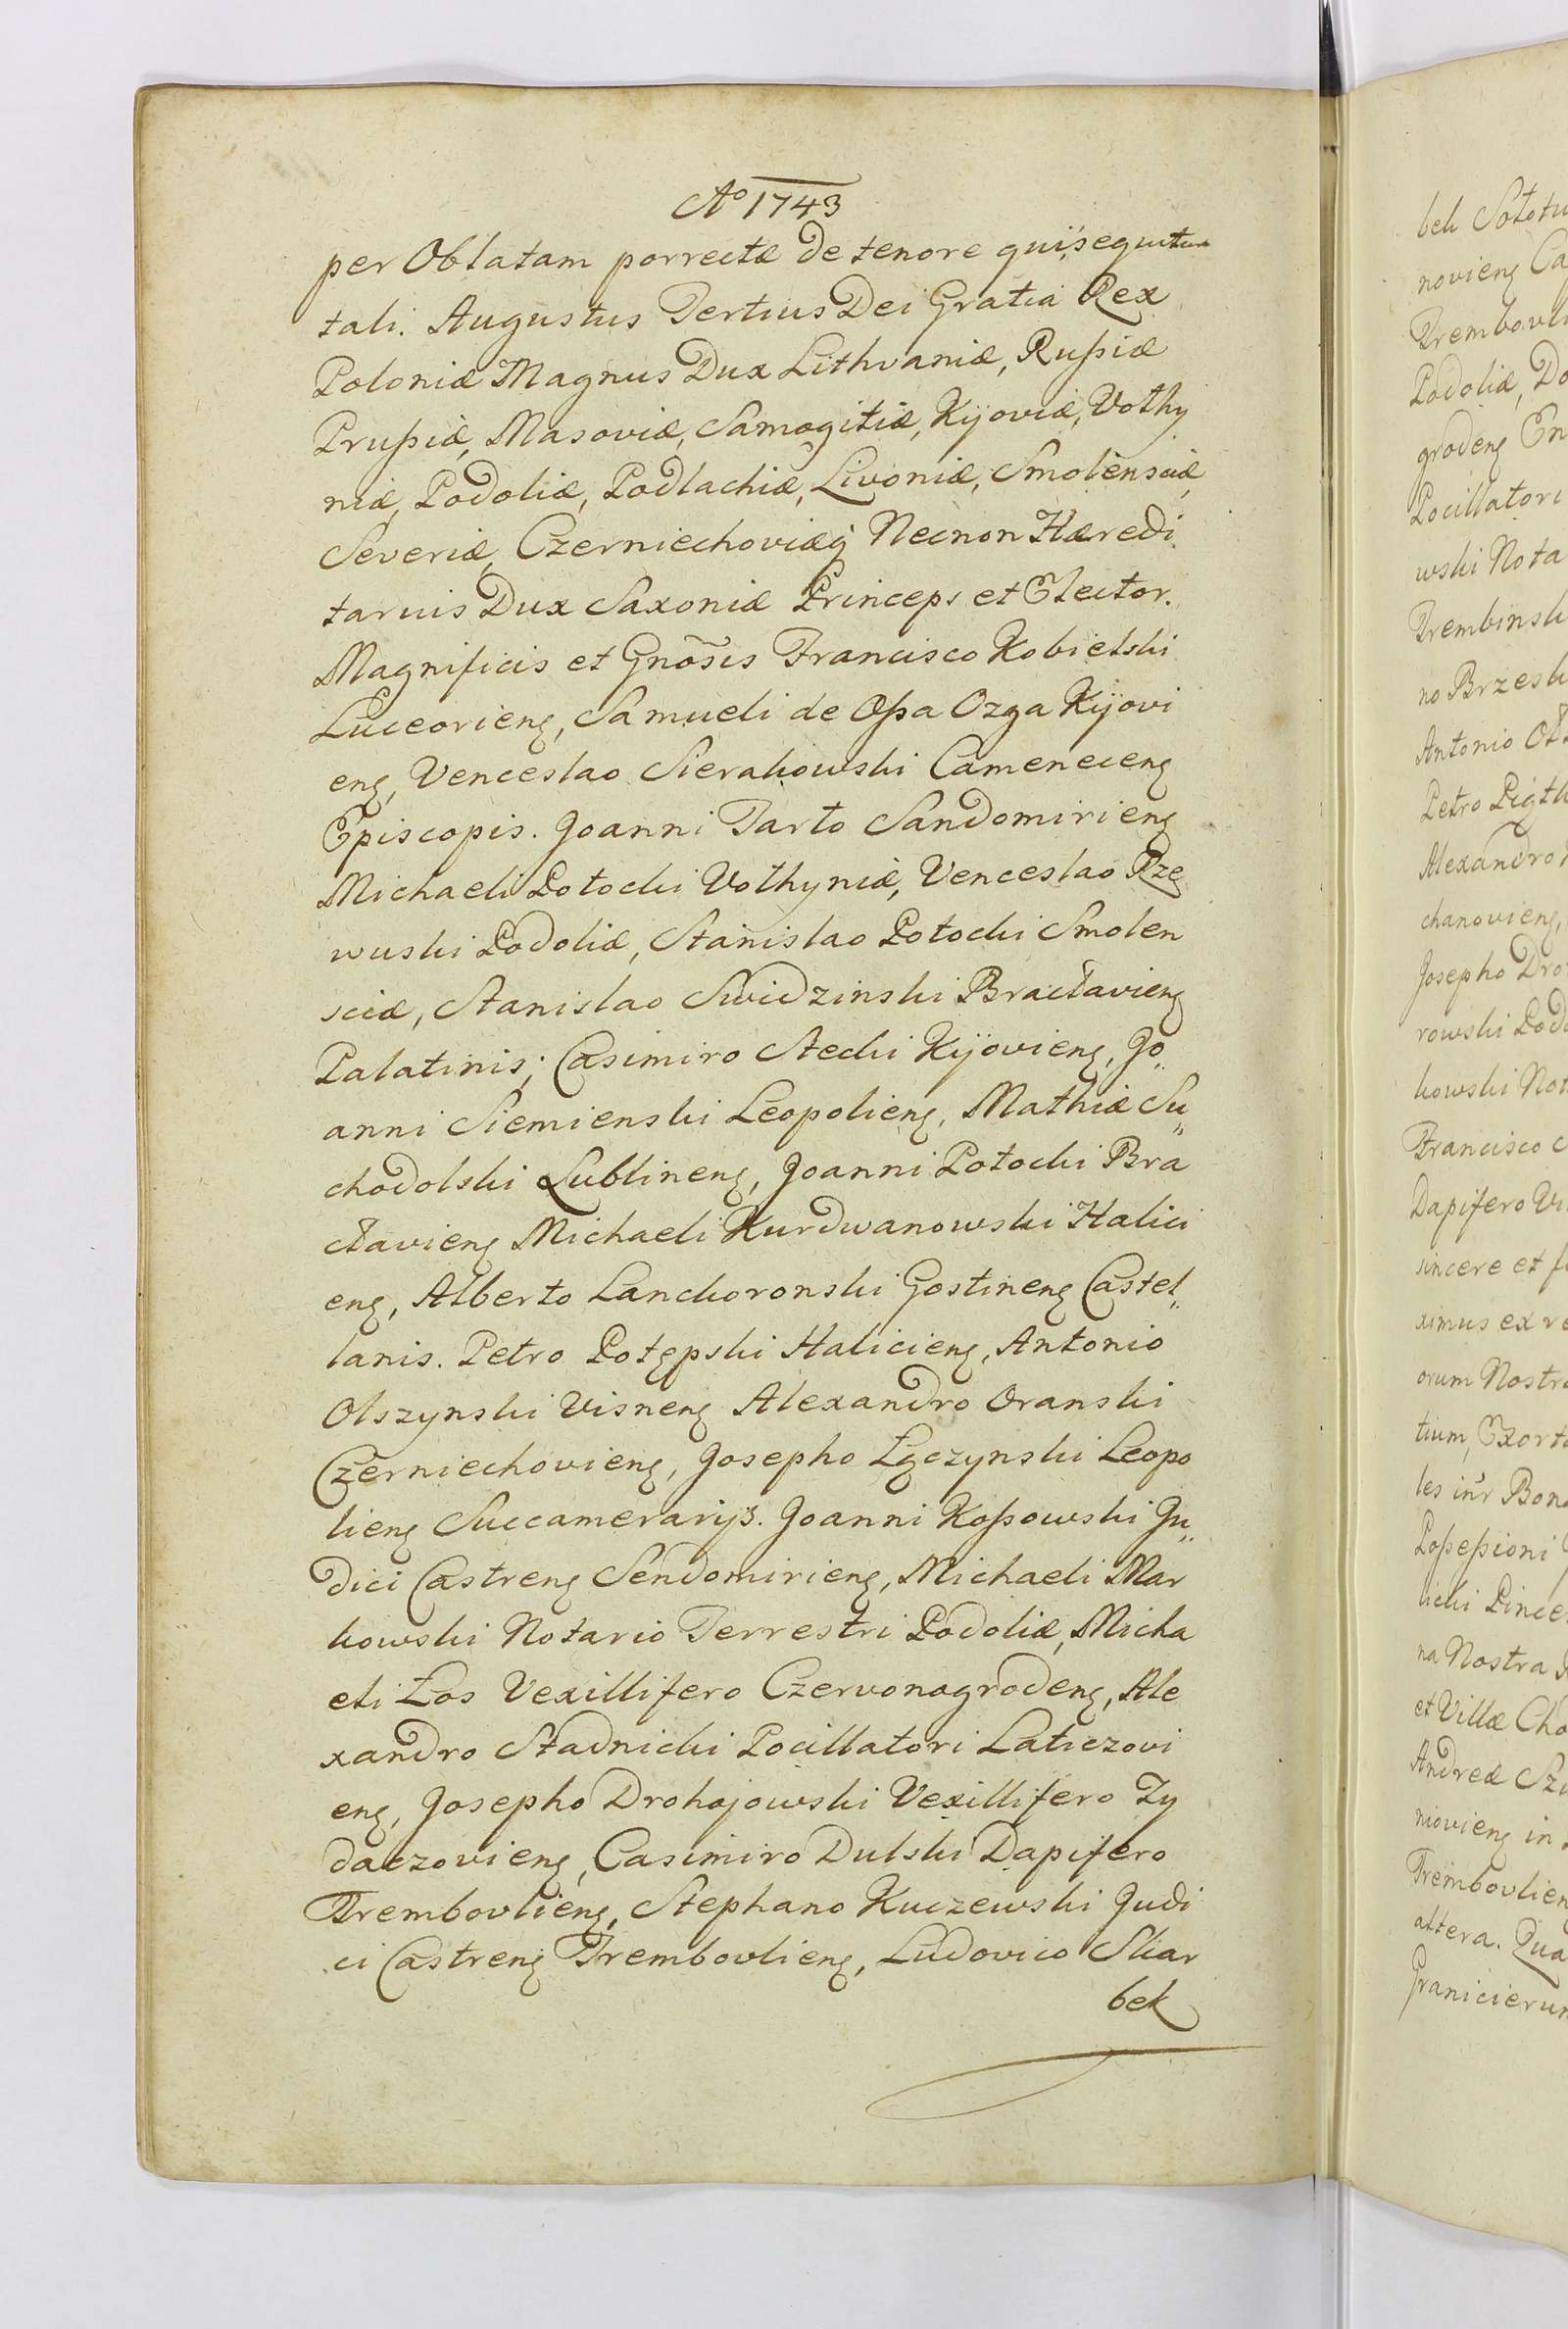 Aº 1743
per Oblatam porrectæ de tenore qui sequitur
tali. Augustus Tertius Dei Gratia Rex
Poloniæ Magnus Dux Lithvaniæ, Rußiæ
Prußiæ, Masoviæ, Samogitiæ, Kijoviæ, Vołhy
niæ, Podoliæ, Podlachiæ, Livoniæ, Smolensciæ,
Severiæ, Czerniechoviæq; Necnon Hæredi
tarius Dux Saxoniæ Princeps et Elector.
Magnificis et Gnõsis Francisco Kobielski
Luceorieng, Samueli de Oßa Ozga Kijovi
eng, Venceslao Sierakowski Cameneceng
Episcopis. Joanni Tarło Sandomirieng
Michaeli Potocki Vołhyniæ, Venceslao Rze
wuski Podoliæ, Stanislao Potocki Smolen
sciæ, Stanislao Swidzinski Bracłavieng
Palatinis; Casimiro Stecki Kijovieng, Jo„
anni Siemienski Leopolieng, Mathiæ Su„
chodolski Lublineng, Joanni Potocki Bra
cłavieng Michaeli Kurdwanowski Halici
eng, Alberto Lanckoronski Gostineng Castel„
lanis. Petro Potępski Halicieng, Antonio
Olszynski Visneng Alexandro Oranski
Czerniechovieng, Josepho Łączynski Leopo
lieng Succamerarijs. Joanni Koßowski Ju„
dici Castreng Sendomirieng, Michaeli Mar
kowski Notario Terrestri Podoliæ, Micha
eli Łos Vexillifero Czervonogrodeng, Ale
xandro Stadnicki Pocillatori Laticzovi
eng, Josepho Drohojowski Vexillifero Zy
daczovieng, Casimiro Dulski Dapifero
Trembovlieng, Stephano Kuczewski Judi
ci Castreng Trembovlieng, Ludovico Skar
bek
bek Sołotw
novieng Ca
Trembovli
Podoliæ, Do
grodeng En
Pocillatori
wski Nota
Trembinsk
no Brzesk
Petro Pigł
Alexandro
chanovieng,
Josepho Dro
rowski Podo
kowski Not
Francisco
Dapifero Vi
sincere et f
ximus ex re
orum Nostr
tium, Exort
les inr Bon
Poßeßioni
licki Pince
na Nostra
et Villæ Cho
Andreæ Sz
niovieng in
Trembovlien
altera. Qua
Granicierum